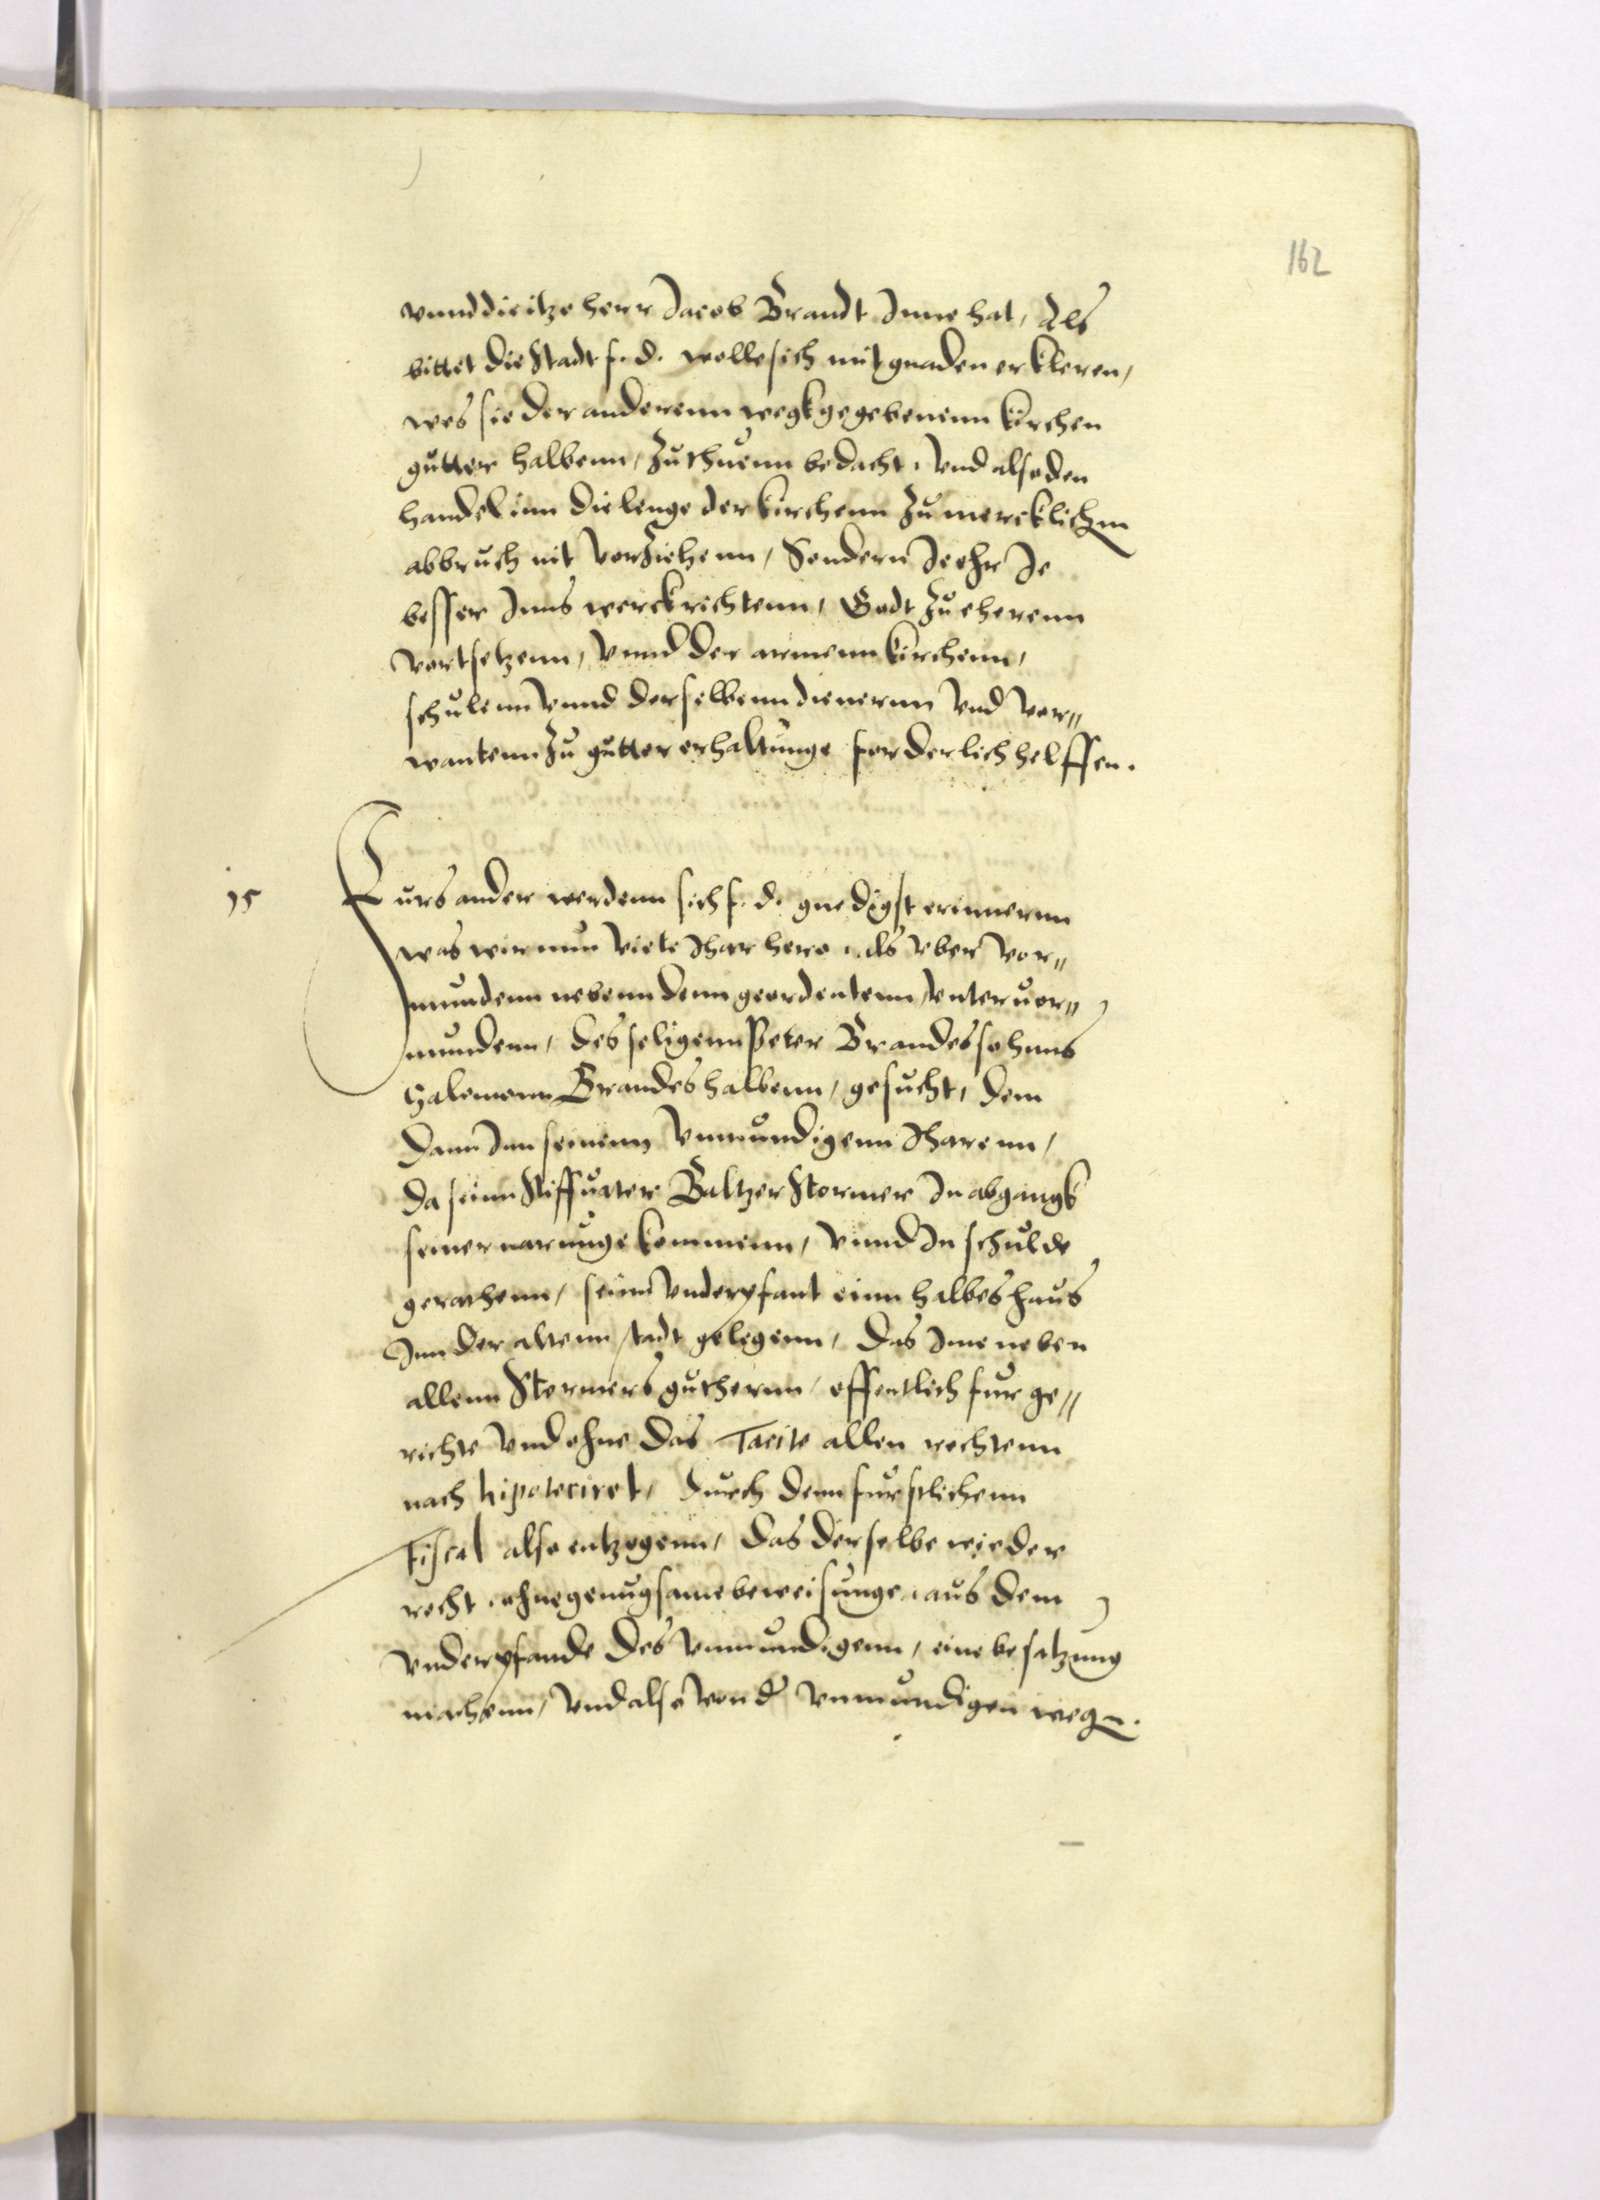 162
vnnd die itze herr Jacob Brandt Inne hat, Als
bittet die Stadt f. d. wolle sich mit gnaden erkleren,
wes sie der anderenn wegkgegebenenn kirchen
gutter halbenn, zu thuenn bedacht, vnd also den
handel inn die lenge der kirchenn zu mercklichem
abbruch nit vorziehenn, Sondern Je ehr Je
besser Inns werck richtenn, Godt zu eherenn
vortsetzenn, vnnd der armenn kirchenn,
schulenn vnnd derselbenn dienernn vnd vor„
wantenn zu gutter erhaltunge forderlich helffen.
15
Furs ander werdenn sich f. d. gnedigst erinnernn
was wir nun viele Jhar hero, als vber vor„
mundenn nebenn denn geordentenn vnter vor„
mundenn, des seligenn Peter Brandes sohnns
Salomonn Brandes halbenn, gesucht, dem
dann Inn seinenn vnmundigenn Jharenn,
da seinn Stiffvater Baltzer Stormer In abgangk
seiner narunge kommenn, vnnd In schulde
gerathenn, seinn vnderpfant einn halbes haus
Inn der altenn stadt gelegenn, das Ime neben
allenn Stormers guthernn, offentlich fur ge„
richte vnd ohne das Tacite allen rechtenn
nach hipoteciret, durch denn furstlichenn
Fiscal also entzogenn, das derselbe wieder
recht, ohne genugsame beweisunge, aus dem
vnderpfande des vnmundigenn, eine besatzung
machenn, vnd also von des vnmundigen wegen.